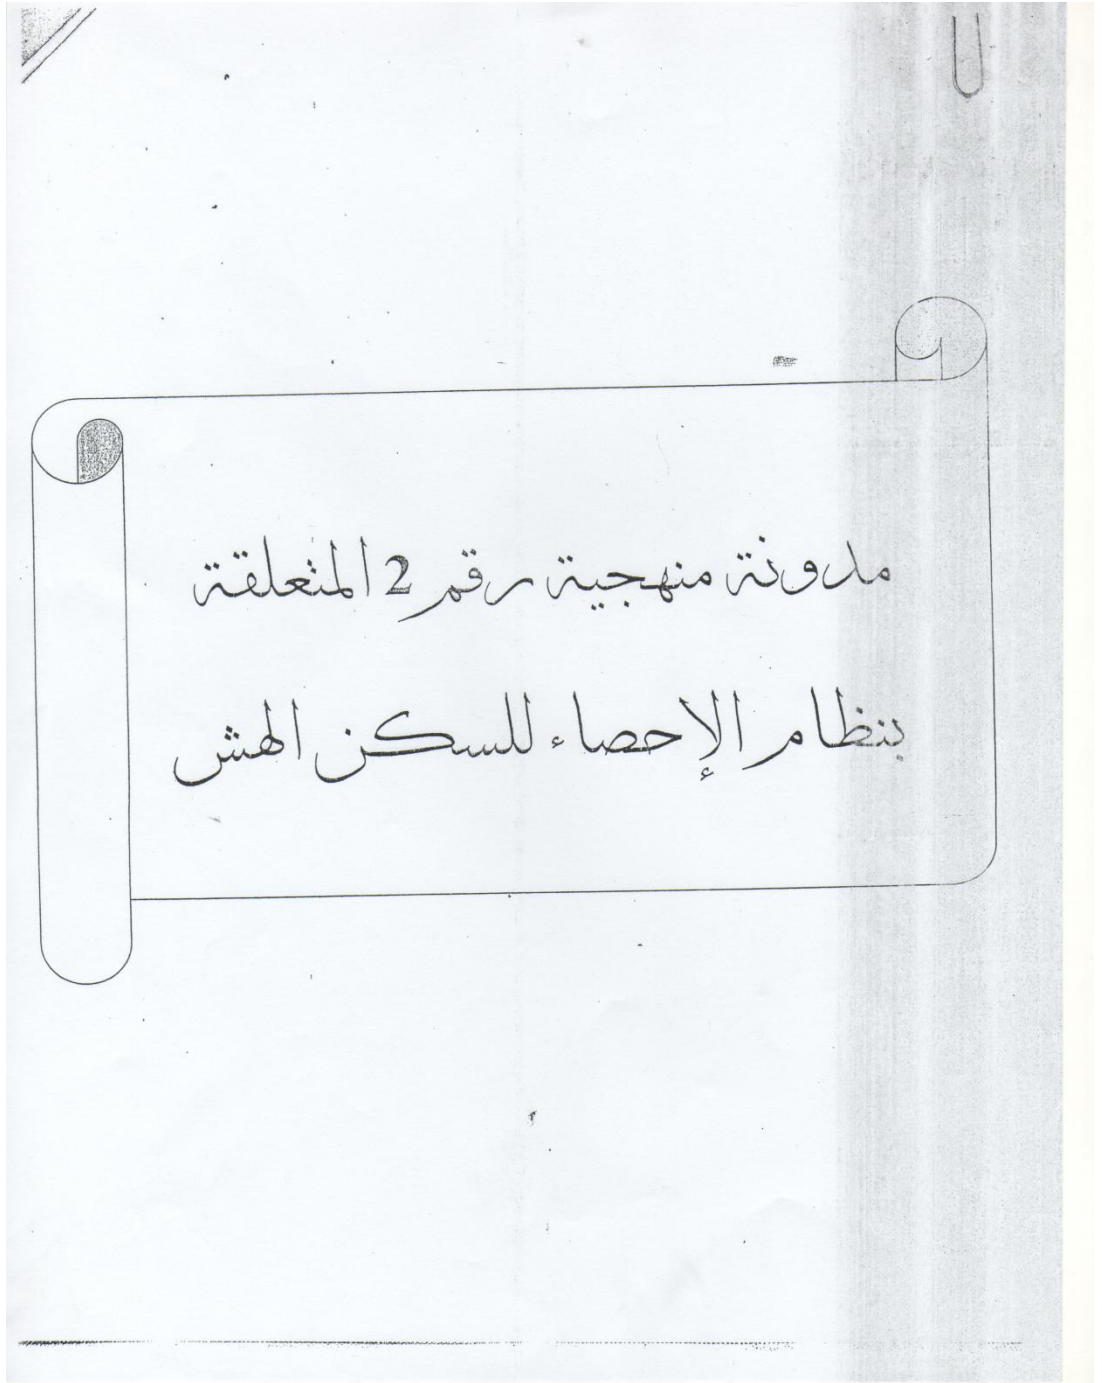 مدونة منهجية رقم 2 المتعلقة
بنظام الإحصاء للسكن الهش